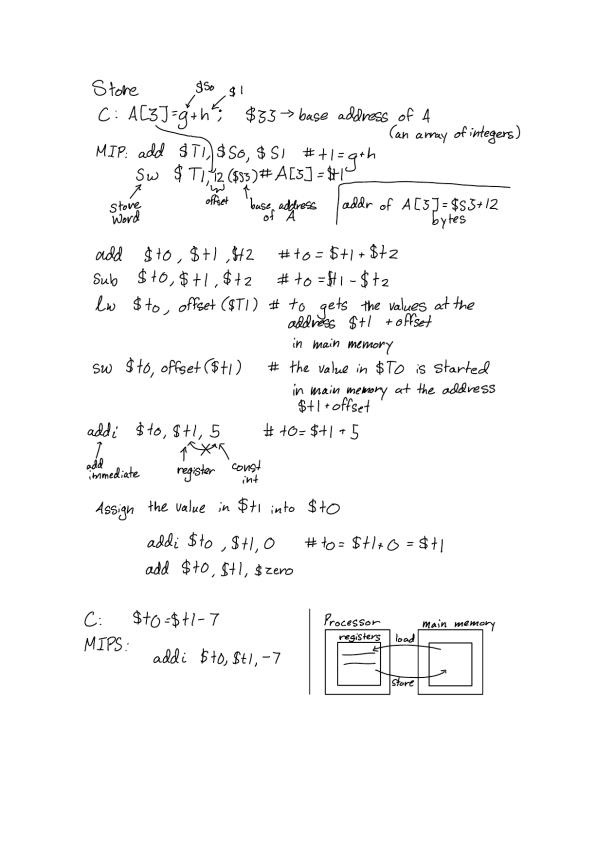 Store
$S0 $1
C: A[3]=g+h; $33 → base address of A
(an array of integers)
MIP: add $T1, $S0, $S1 #t1=g+h
Sw $T1, 12($S3) # A[3]=$t1
Store Word
offset
base address of A
addr of A[3]=$S3+12
bytes
add $t0, $t1, $t2 # t0 = $t1 + $t2
Sub $t0, $t1, $t2 # t0 = $t1 - $t2
lw $t0, offset($T1) # t0 gets the values at the
address $t1 + offset
in main memory
sw $t0, offset($t1) # the value in $T0 is started
in main memory at the address
$t1 + offset
addi $t0, $t1, 5 # t0= $t1 + 5
add immediate
register
const int
Assign the value in $t1 into $t0
addi $t0, $t1, 0 # t0= $t1+0 = $t1
add $t0, $t1, $zero
C: $t0=$t1-7
MIPS:
addi $t0, $t1, -7
Processor main memory
registers load
store